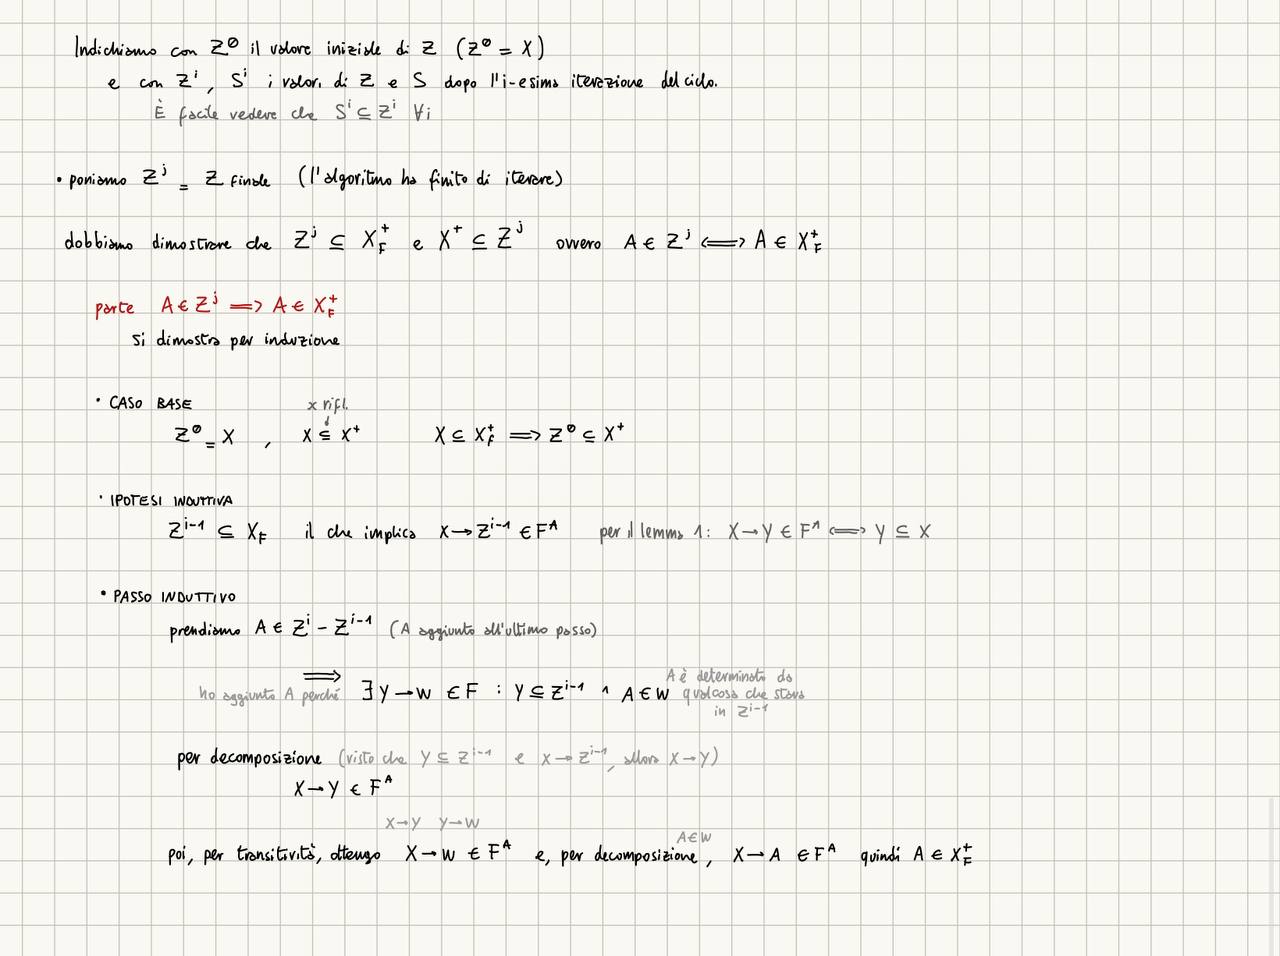 Indichiamo con Z⁰ il valore iniziale di Z (Z⁰ = X)
e con Zⁱ, Sⁱ i valori di Z e S dopo l'i-esima iterazione del ciclo.
È facile vedere che Sⁱ ⊆ Zⁱ ∀i
• poniamo Zʲ = Z finale (l'algoritmo ha finito di iterare)
dobbiamo dimostrare che Zʲ ⊆ X_F⁺ e X⁺ ⊆ Zʲ ovvero A ∈ Zʲ ⟺ A ∈ X_F⁺
parte A ∈ Zʲ ⟹ A ∈ X_F⁺
si dimostra per induzione
• CASO BASE
x rifl.
↓
Z⁰ = X , X ⊆ X⁺ X ⊆ X_F⁺ ⟹ Z⁰ ⊆ X⁺
• IPOTESI INDUTTIVA
Zⁱ⁻¹ ⊆ X_F il che implica X → Zⁱ⁻¹ ∈ Fᴬ per il lemma 1: X → Y ∈ Fᴬ ⟺ Y ⊆ X
• PASSO INDUTTIVO
prendiamo A ∈ Zⁱ − Zⁱ⁻¹ (A aggiunto all'ultimo passo)
⟹
ho aggiunto A perché ∃ Y → W ∈ F : Y ⊆ Zⁱ⁻¹ ∧ A ∈ W
A è determinato da
qualcosa che stava
in Zⁱ⁻¹
per decomposizione (visto che Y ⊆ Zⁱ⁻¹ e X → Zⁱ⁻¹, allora X → Y)
X → Y ∈ Fᴬ
X → Y Y → W
A ∈ W
poi, per transitività, ottengo X → W ∈ Fᴬ e, per decomposizione, X → A ∈ Fᴬ quindi A ∈ X_F⁺